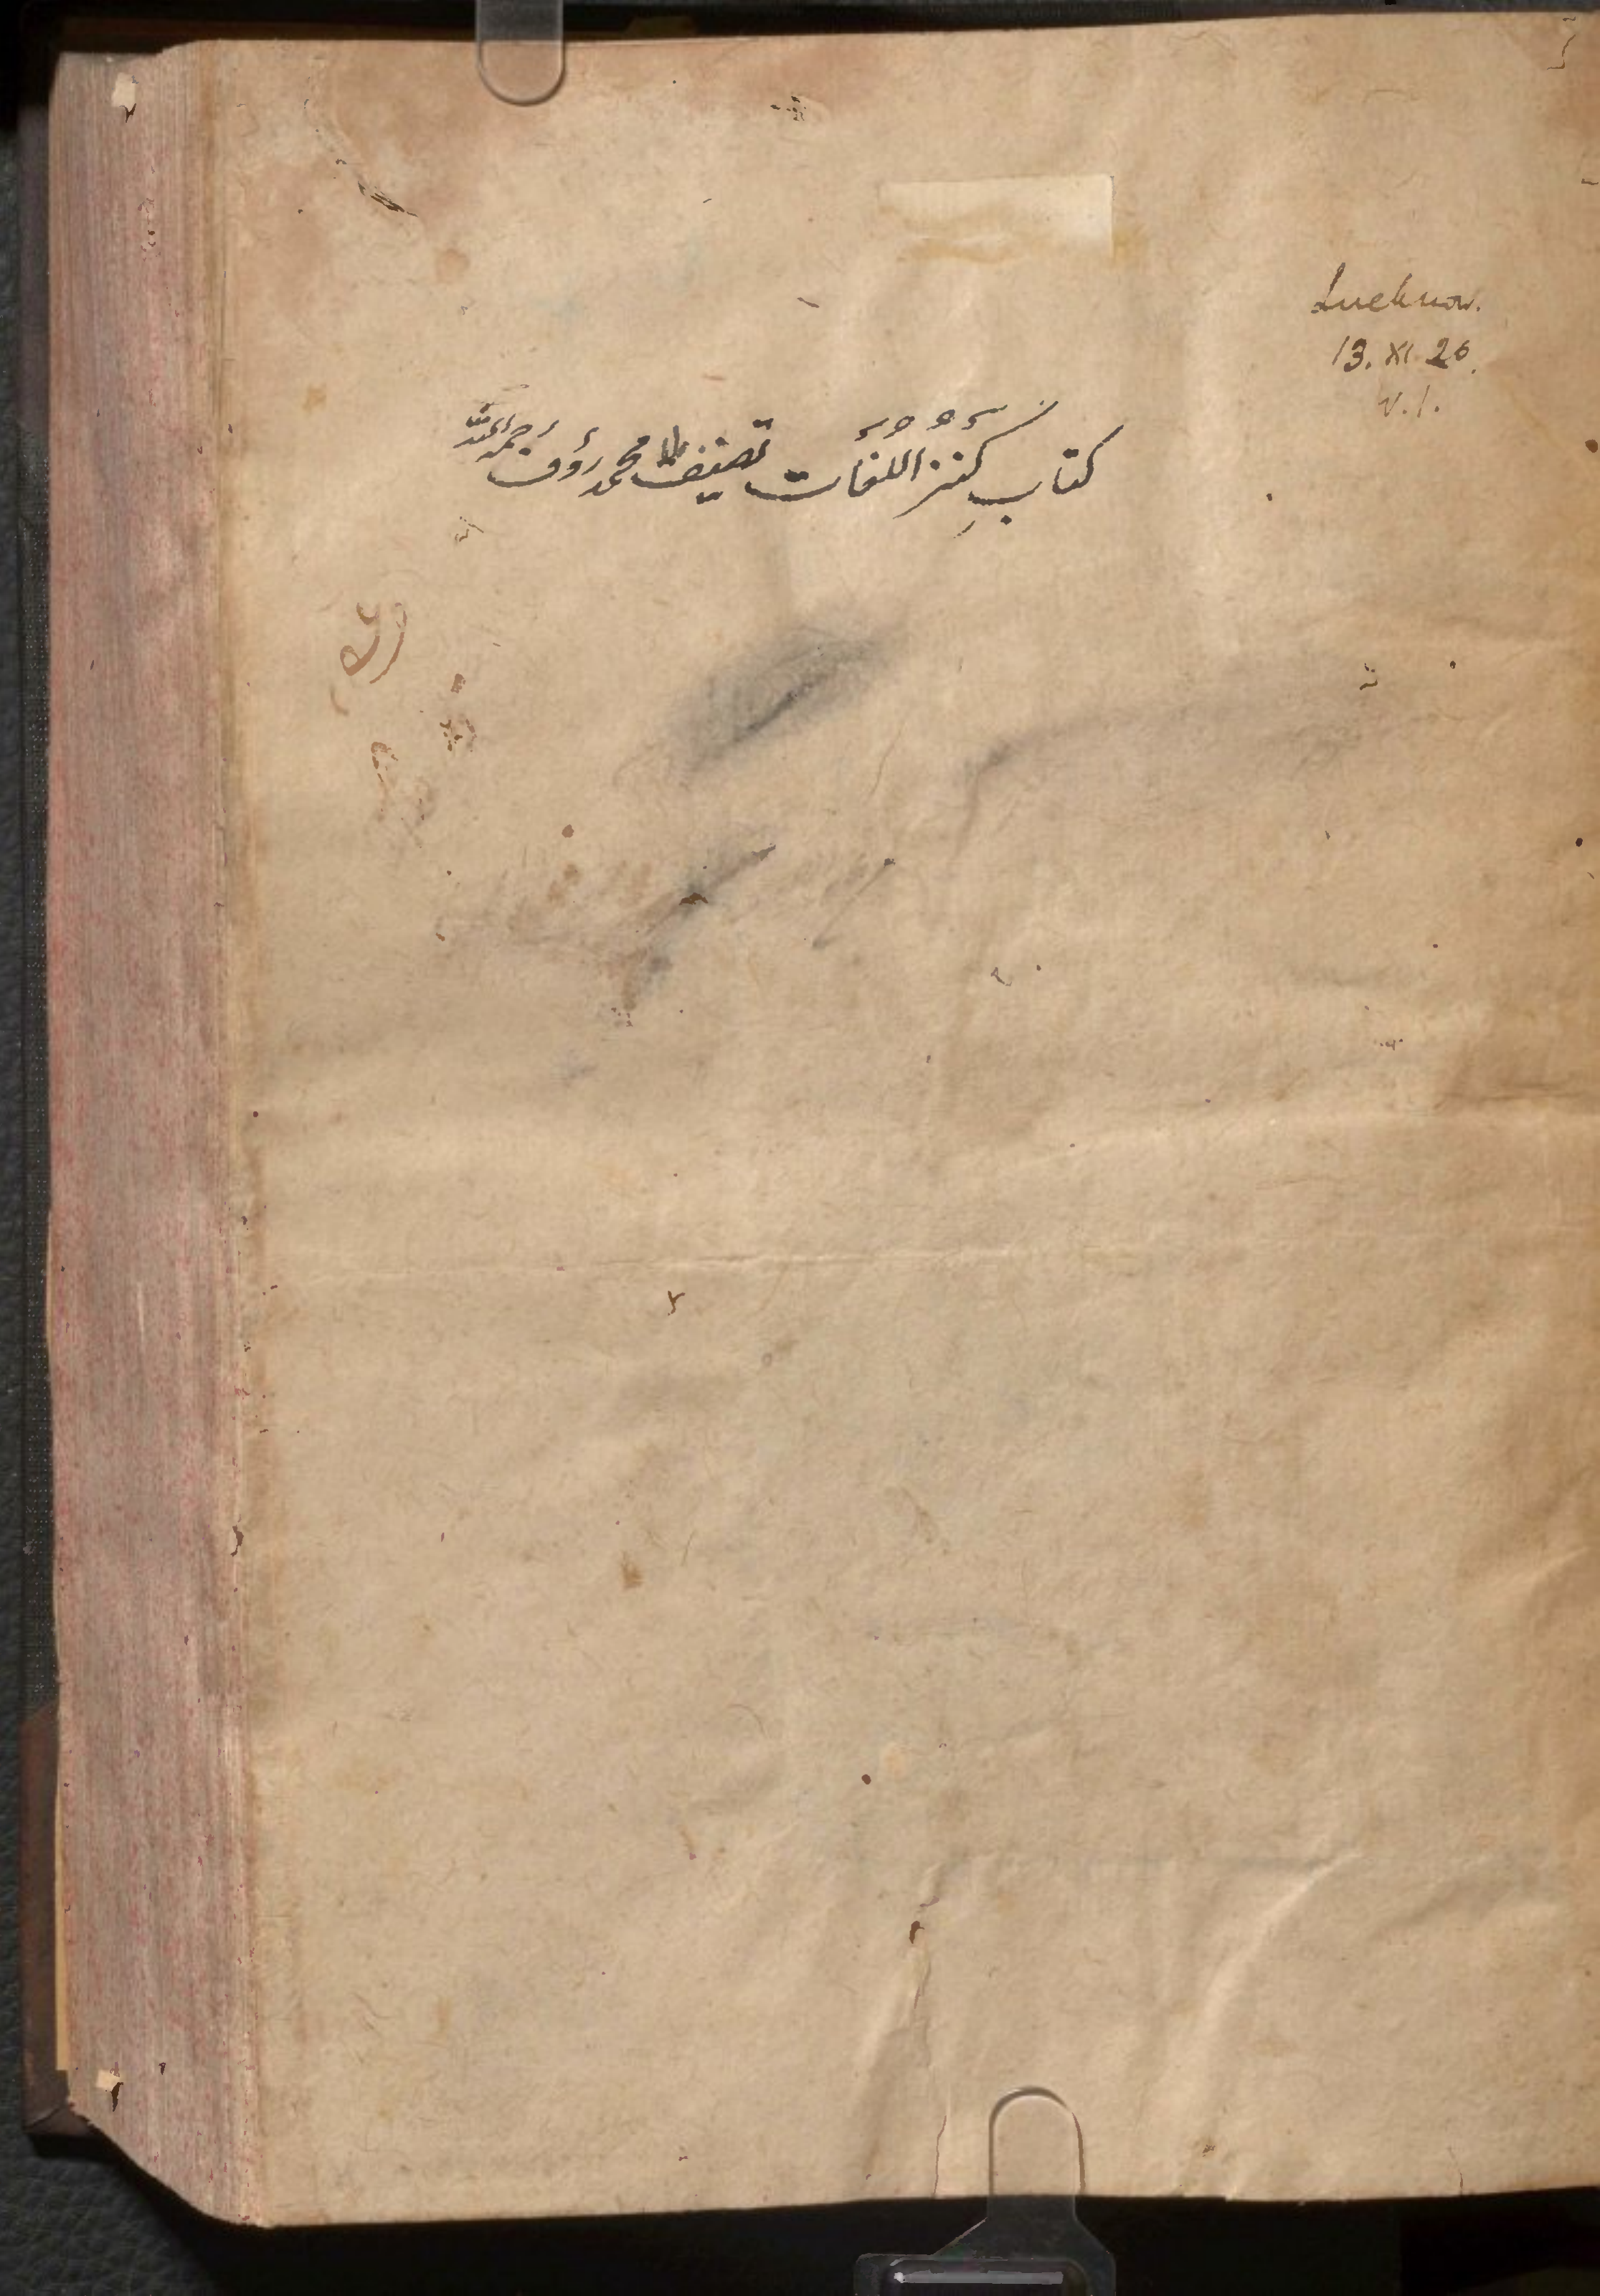 Lucknow.
13. XI. 26.
V.I.
کتابِ کنز اللغات تصنیف ملا محمد رؤف رحمه الله